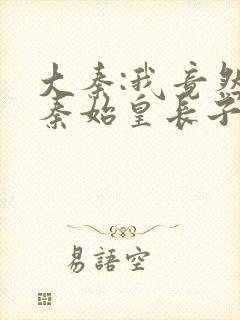 大秦:我竟然
秦始皇长子
易語空